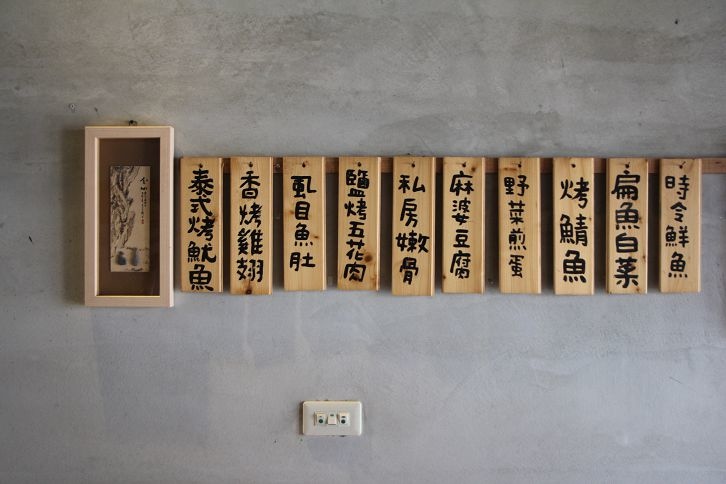 時令鮮魚
扁魚白菜
烤鯖魚
野菜煎蛋
麻婆豆腐
私房嫩骨
鹽烤五花肉
虱目魚肚
香烤雞翅
泰式烤魷魚